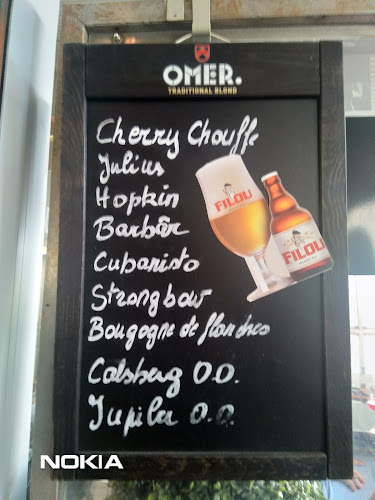 OMER.
TRADITIONAL BLOND
Cherry Chouffe
Julius
Hopkin
Barbãr
Cubanisto
Strongbow
Bougogne de flandres
Calsberg 0.0.
Jupiler 0.0.
FILOU
FILOU
NOKIA